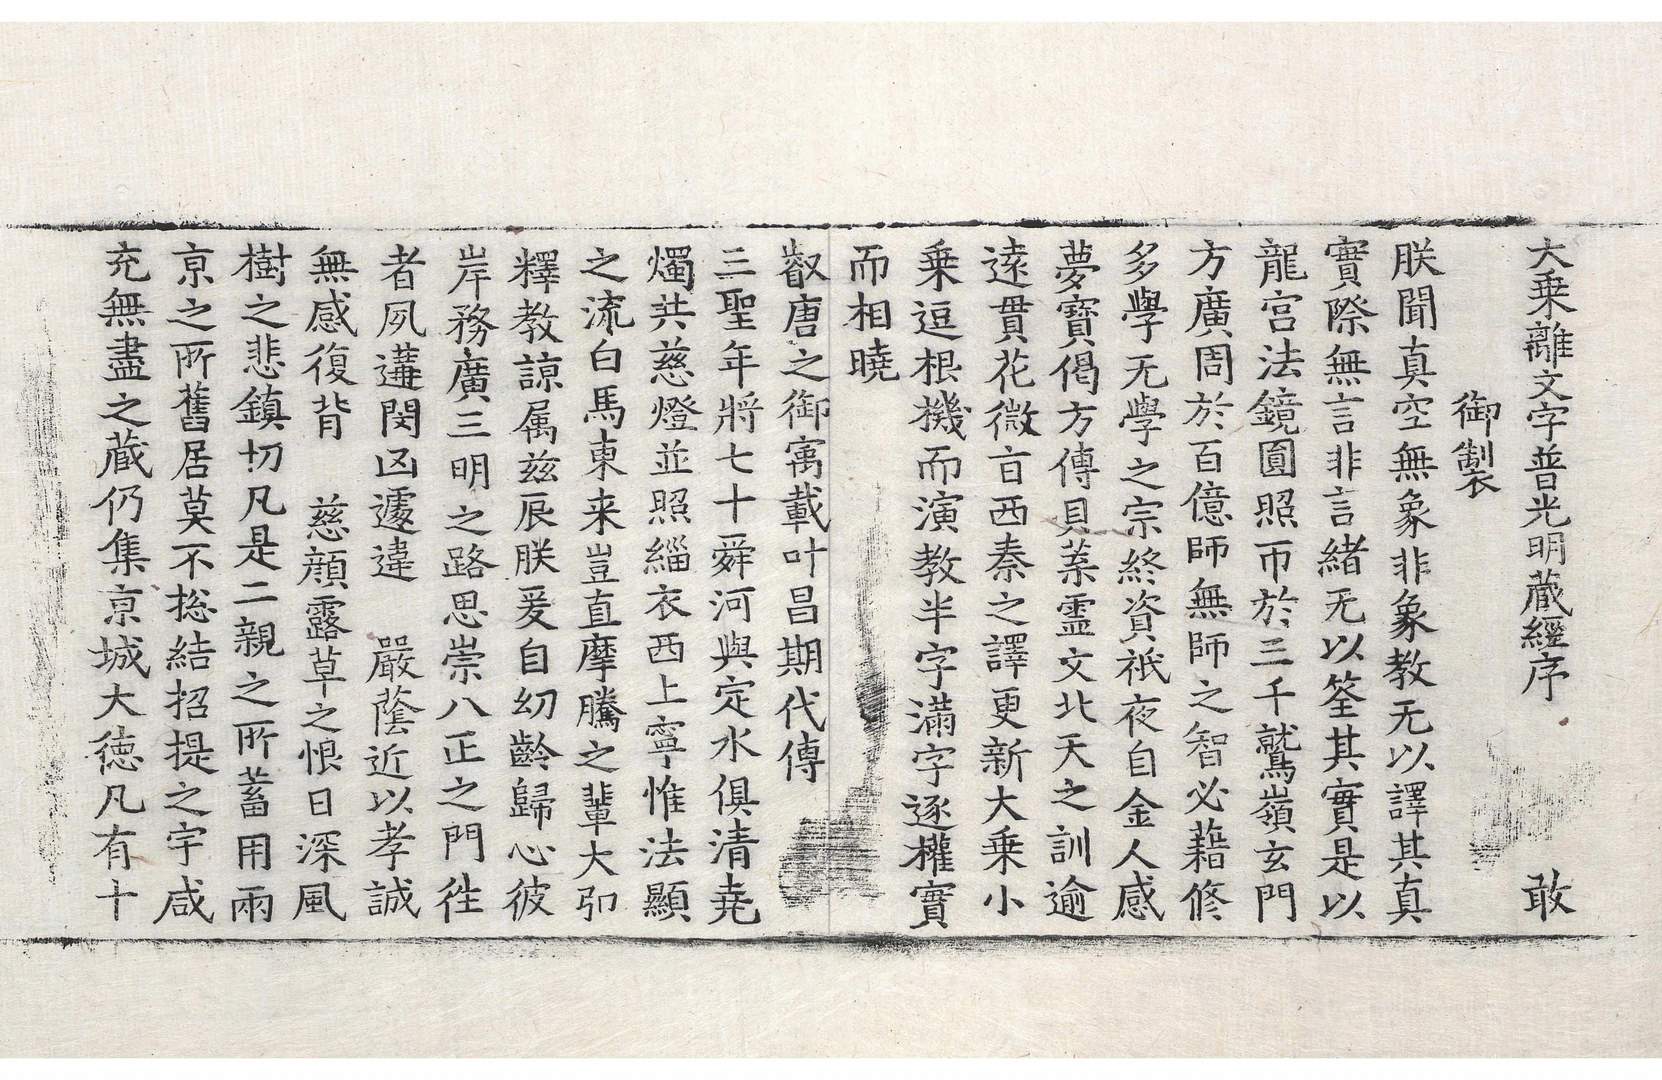 大乗離文字普光明蔵經序 敢
御製
朕聞真空無象非象教无以譯其真
實際無言非言緒无以筌其實是以
龍宮法鏡圓照帀於三千鷲嶺玄門
方廣周於百億師無師之智必藉修
多學无學之宗終資祇夜自金人感
夢寶偈方傳貝葉霊文北天之訓逾
遠貫花微言西秦之譯更新大乗小
乗逗根機而演教半字滿字逐權實
而相曉
叡唐之御寓載叶昌期代傳
三聖年將七十舜河與定水俱清堯
燭共慈燈並照緇衣西上寧惟法顯
之流白馬東来豈直摩騰之輩大卲
釋教諒属茲辰朕爰自幼齡歸心彼
岸務廣三明之路思崇八正之門徃
者夙遘閔凶遽違 嚴蔭近以孝誠
無感復背 慈顔露草之恨日深風
樹之悲鎮切凡是二親之所蓄用兩
京之所舊居莫不捴結招提之宇咸
充無盡之蔵仍集京城大徳凡有十